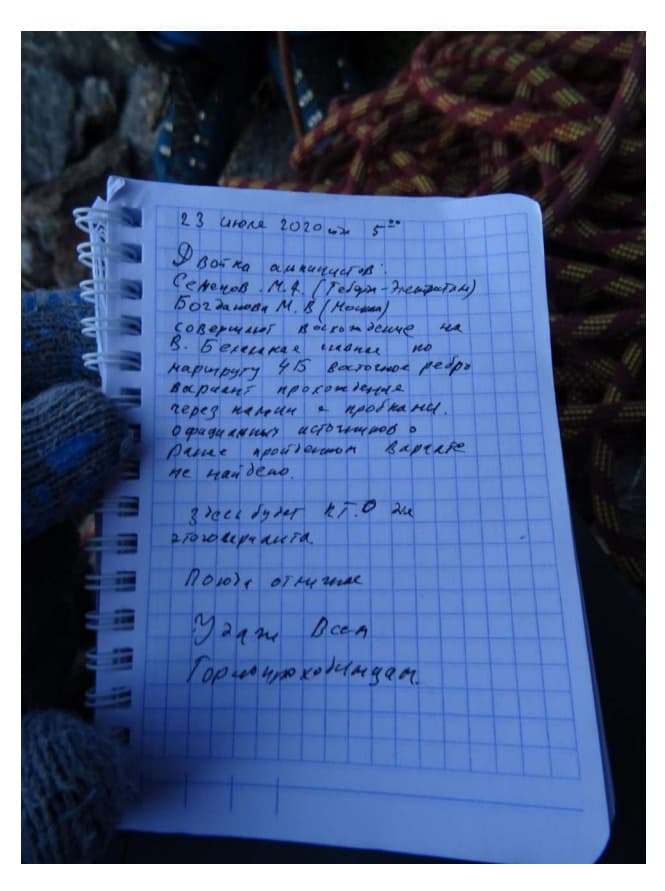 23 июля 2020 5⁰⁰
Двойка альпинистов:
Семенов М.А. (
Богданова М.В (Москва)
совершают восхождение на
В. Белалакая главная по
маршруту 4Б восточное ребро
вариант прохождение
через камин с пробками.
официальных источников о
Ранее пройденном варианте
не найдено.
Здесь будет К.Т.О для
этого варианта.
Погода отличная
Удачи Всем
Горнопроходимцам.